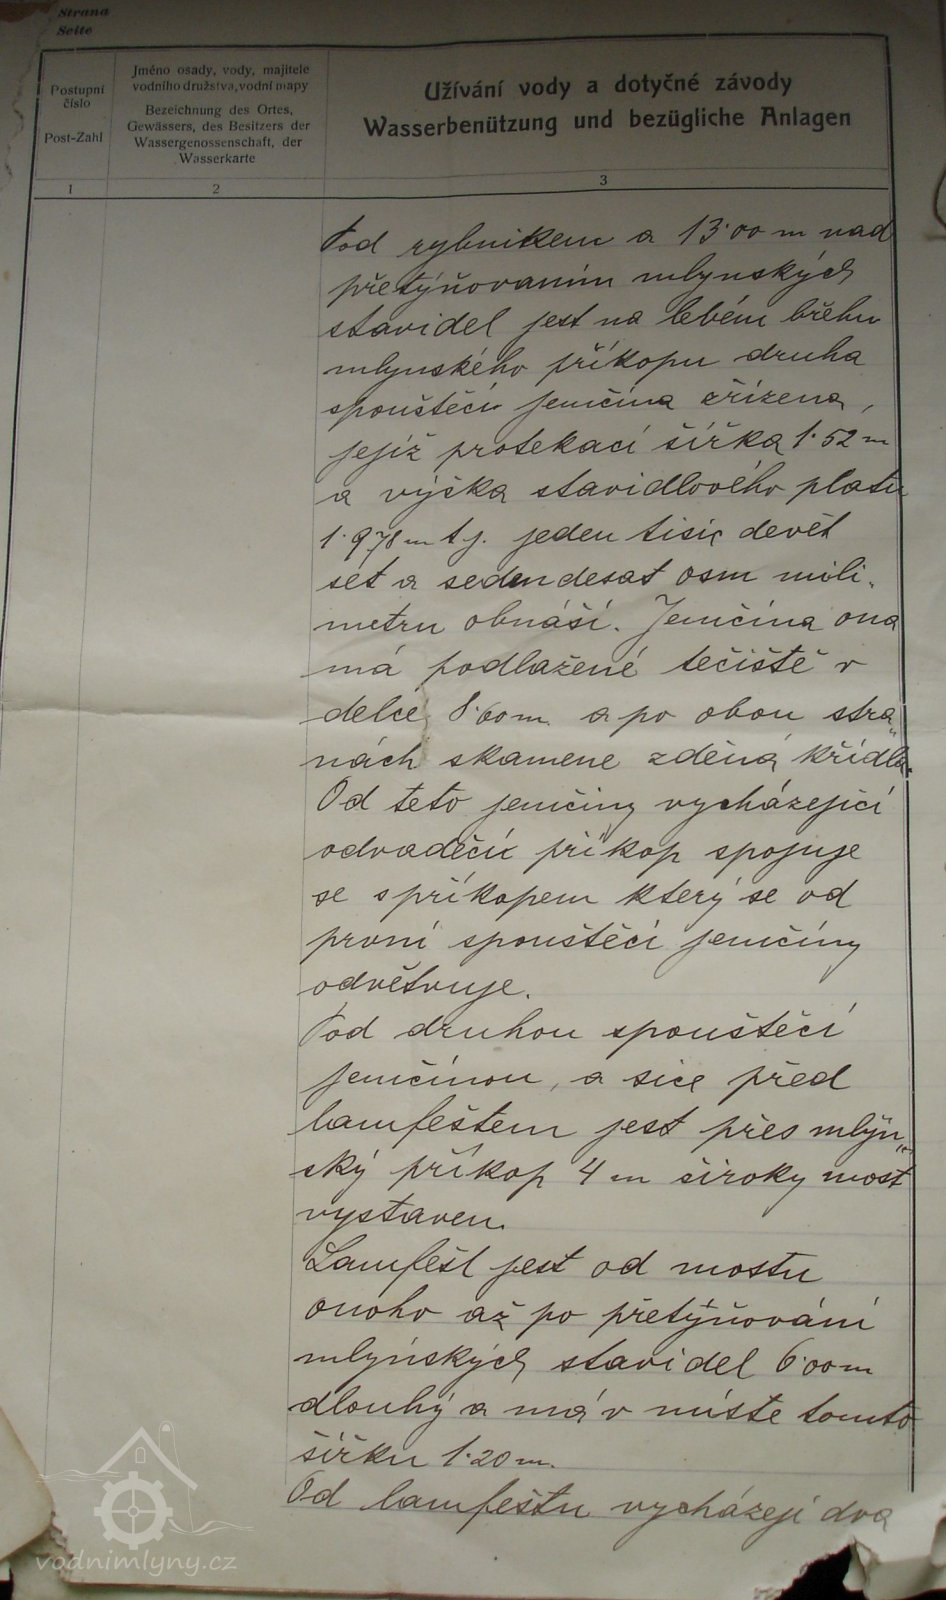 Strana
Seite
Postupní
číslo
Post-Zahl
Jméno osady, vody, majitele
vodního družstva, vodní mapy
Bezeichnung des Ortes,
Gewässers, des Besitzers der
Wassergenossenschaft, der
Wasserkarte
Užívání vody a dotyčné závody
Wasserbenützung und bezügliche Anlagen
1
2
3
Pod rybnikem a 13·00 m nad
přetýňovaním mlynských
stavidel jest na lebém břehu
mlynského příkopu druha
spouštěcí jemčina zřízena,
jejíž protekací šířka 1·52 m
a výška stavidlového platu
1·978 m t.j. jeden tisic devět
set a sedendesat osm mili„
metru obnáší. Jemčina ona
má podlažené tečiště v
delce 8·60 m. a po obou stra„
nách skamene zděná křídla.
Od teto jemčiny vycházející
odvaděcí příkop spojuje
se spříkopem který se od
první spouštěcí jemčiny
odvětvuje.
Pod druhou spouštěcí
jemčinou, a sice před
lamfeštem jest přes mlýn„
ský příkop 4 m široky most
vystaven.
Lamfešt jest od mostu
onoho až po přetýňování
mlýnských stavidel 6·00 m
dlouhý a má v míste tomto
šířku 1·20 m.
Od lamfeštu vycházejí dva
vodnimlyny.cz